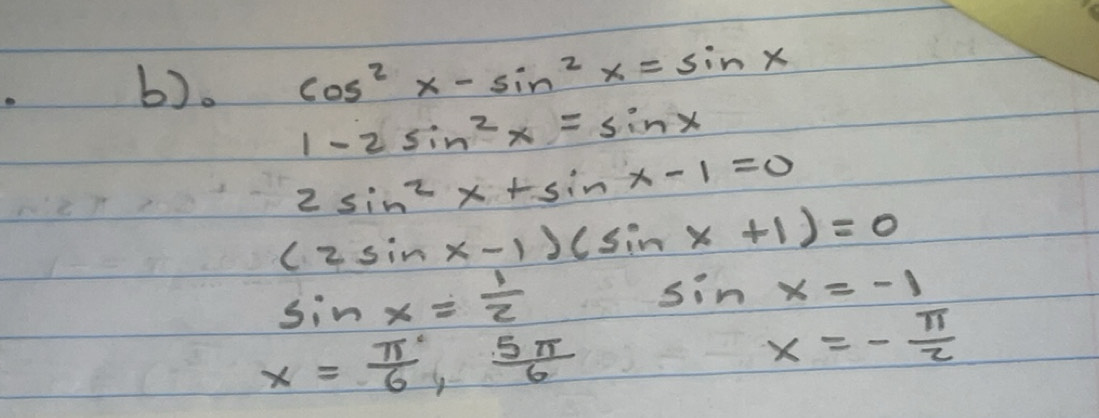 b). cos² x - sin² x = sin x
1 - 2 sin² x = sin x
2 sin² x + sin x - 1 = 0
(2 sin x - 1)(sin x + 1) = 0
sin x = 1/2 sin x = -1
x = π/6, 5π/6 x = -π/2